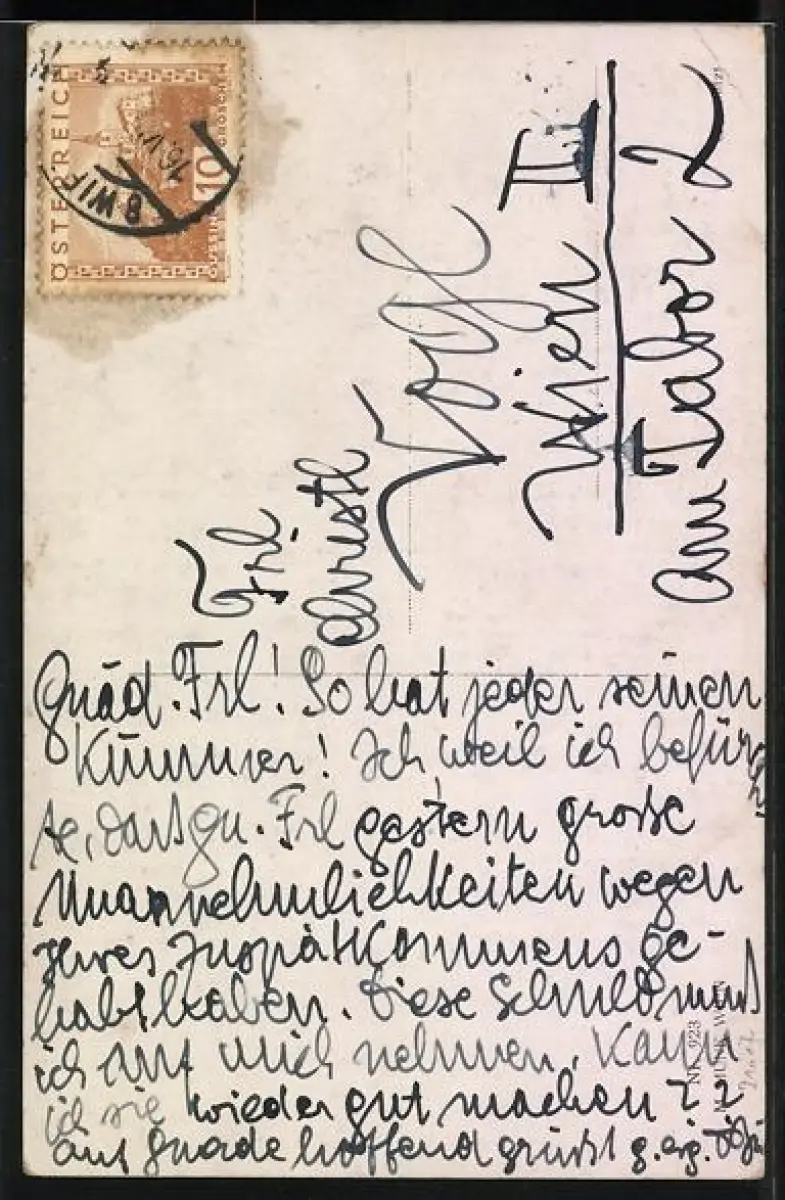 ÖSTERREICH
10
GROSCHEN
GÜSSING
WIE
16.V
Frl
Christl
Vogl
Wien II
Am Tabor 2
Gnäd. Frl! So hat jeder seinen
Kummer! Ich, weil ich befürch
te, daß gn. Frl gestern große
Unannehmlichkeiten wegen
Ihres Zuspätkommens ge-
habt haben. Diese Schuld muß
ich auf mich nehmen. Kann
ich sie wieder gut machen??
Auf Gnade hoffend grüßt
NR. 923